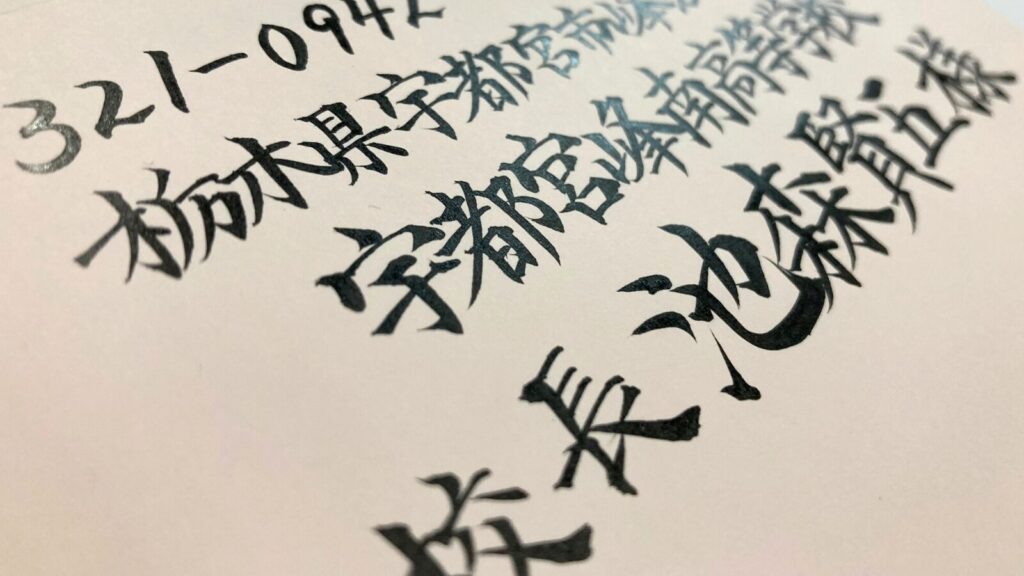 321-0942
栃木県宇都宮市峰
宇都宮峰南高等学校
校長 池森賢立様